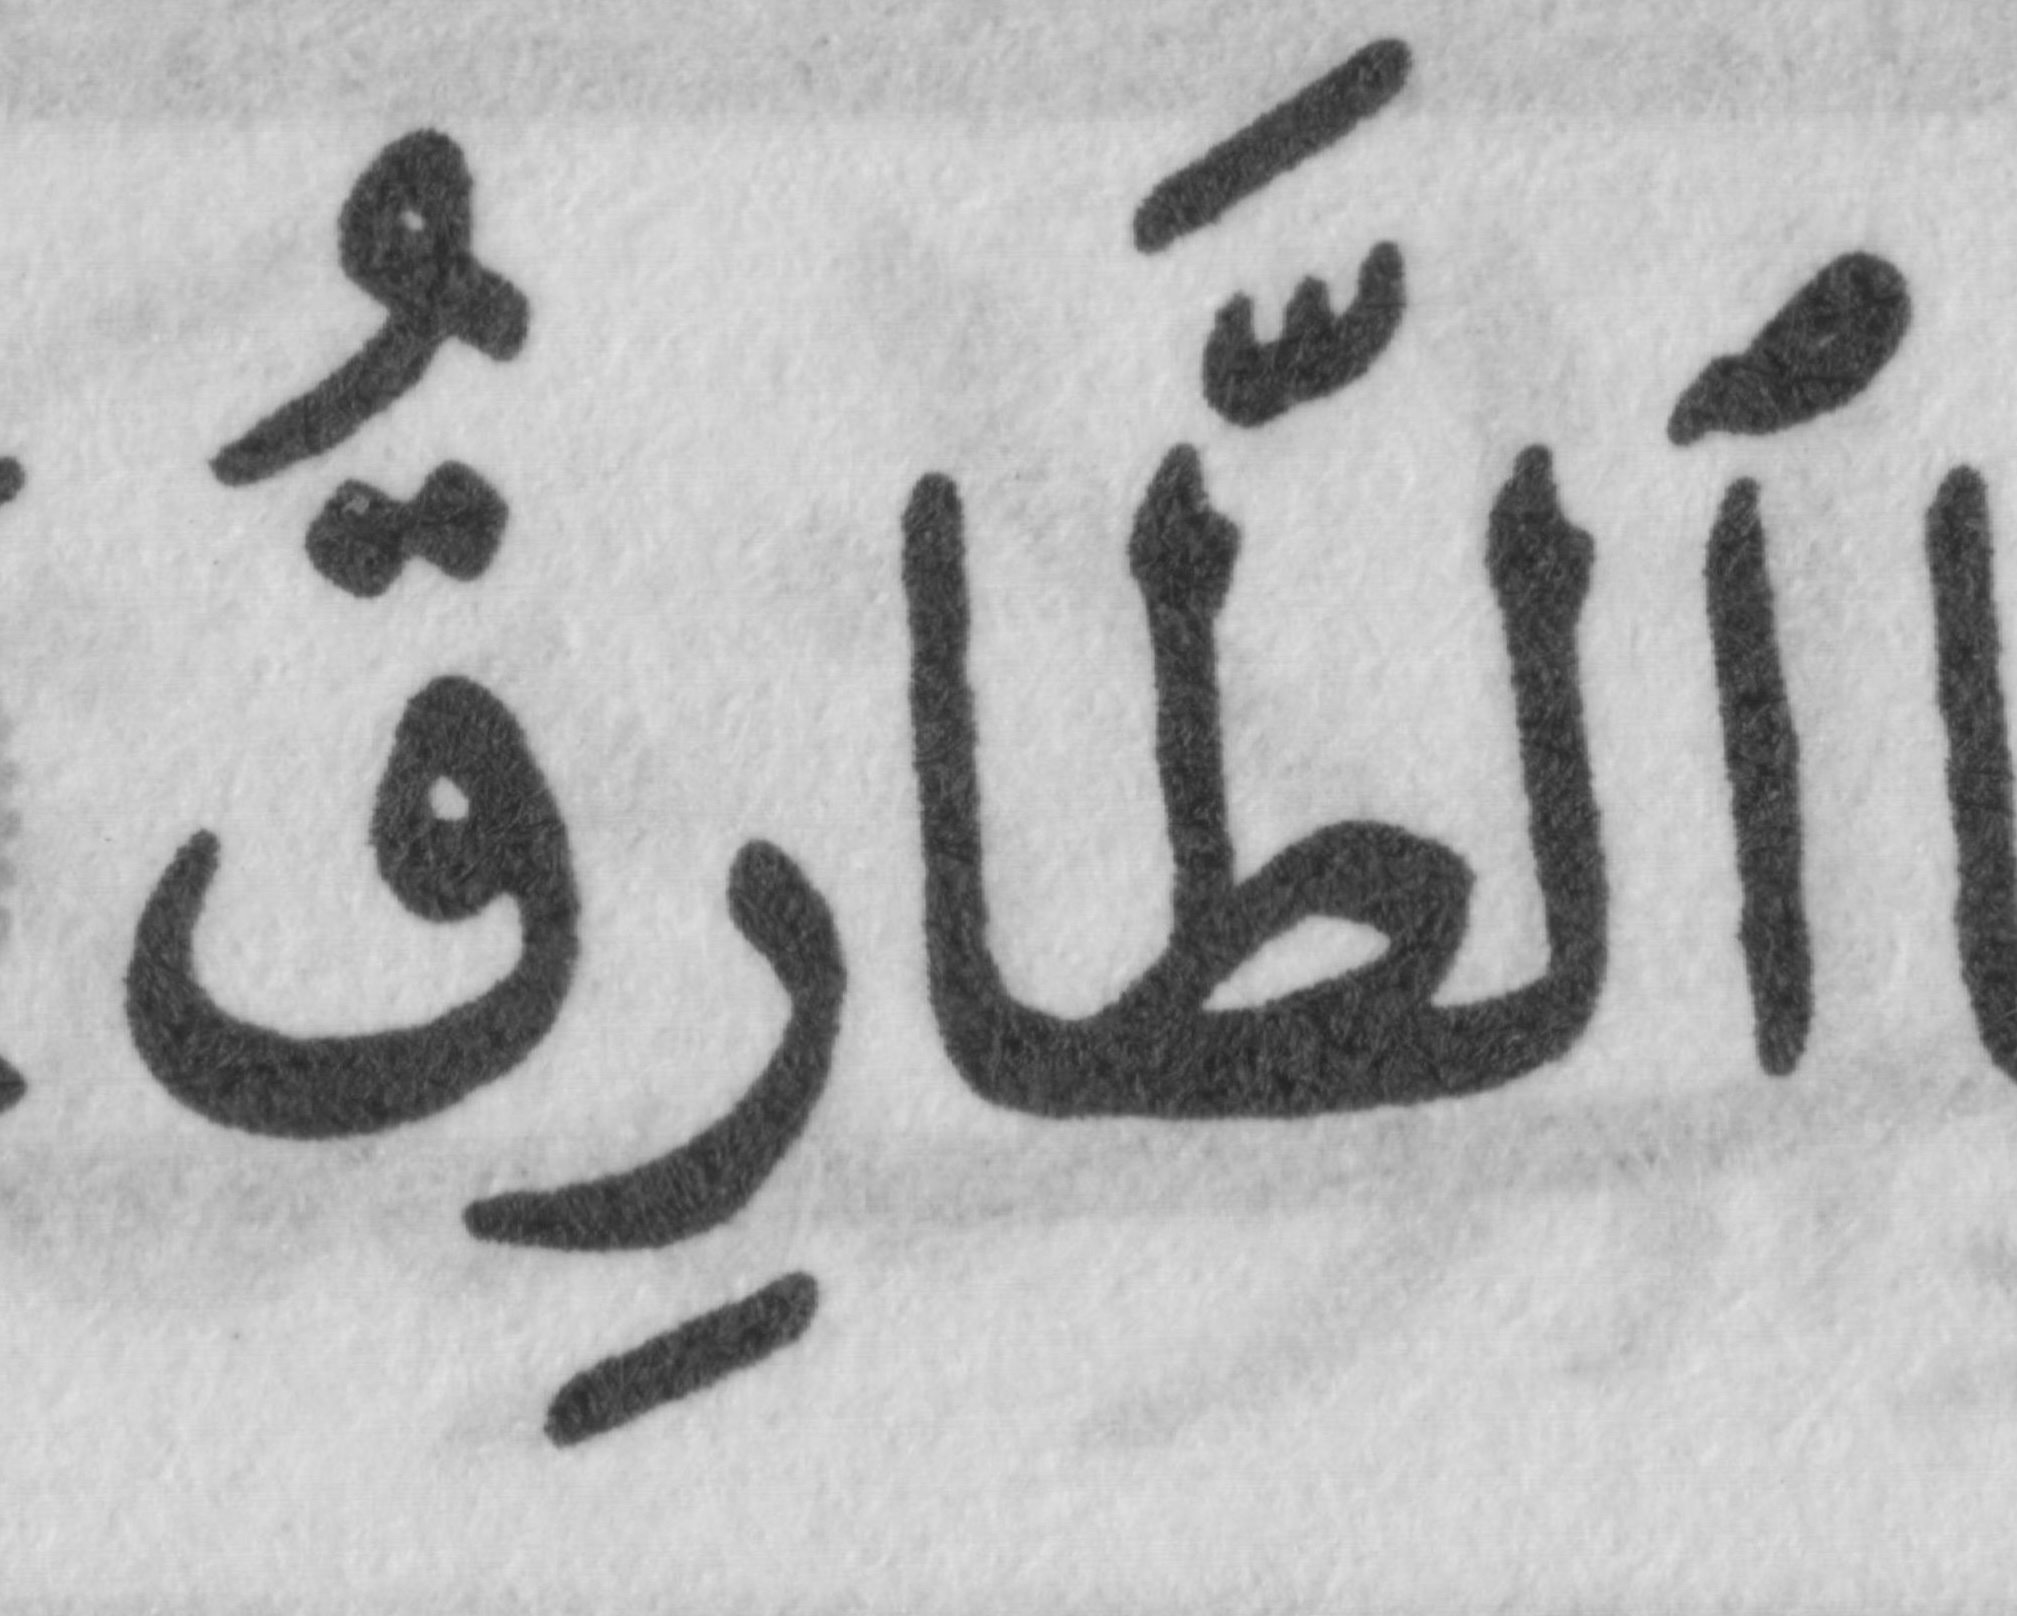 ٱلطَّارِقُ